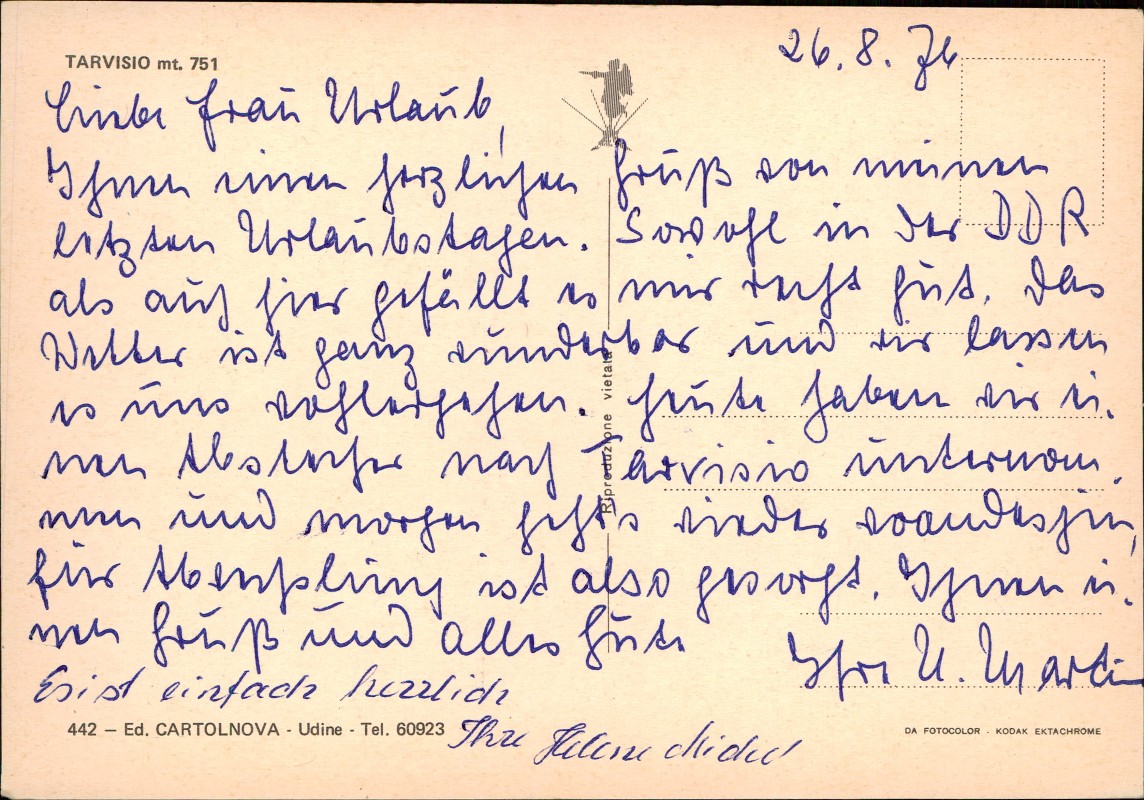 TARVISIO mt. 751
26. 8. 76
Liebe Frau Urlaub,
Ihnen einen herzlichen Gruß von meinen
letzten Urlaubstagen. Sowohl in der DDR
als auch hier gefällt es mir recht gut. Das
Wetter ist ganz wunderbar und wir lassen
es uns wohlergehen. Heute haben wir ei-
nen Abstecher nach Tarvisio unternom-
men und morgen geht's wieder woandershin,
für Abwechslung ist also gesorgt. Ihnen ei-
nen Gruß und alles Gute
Ihre U. Martin
Es ist einfach herrlich
Ihre Helene
442 – Ed. CARTOLNOVA - Udine - Tel. 60923
Riproduzione vietata
DA FOTOCOLOR - KODAK EKTACHROME